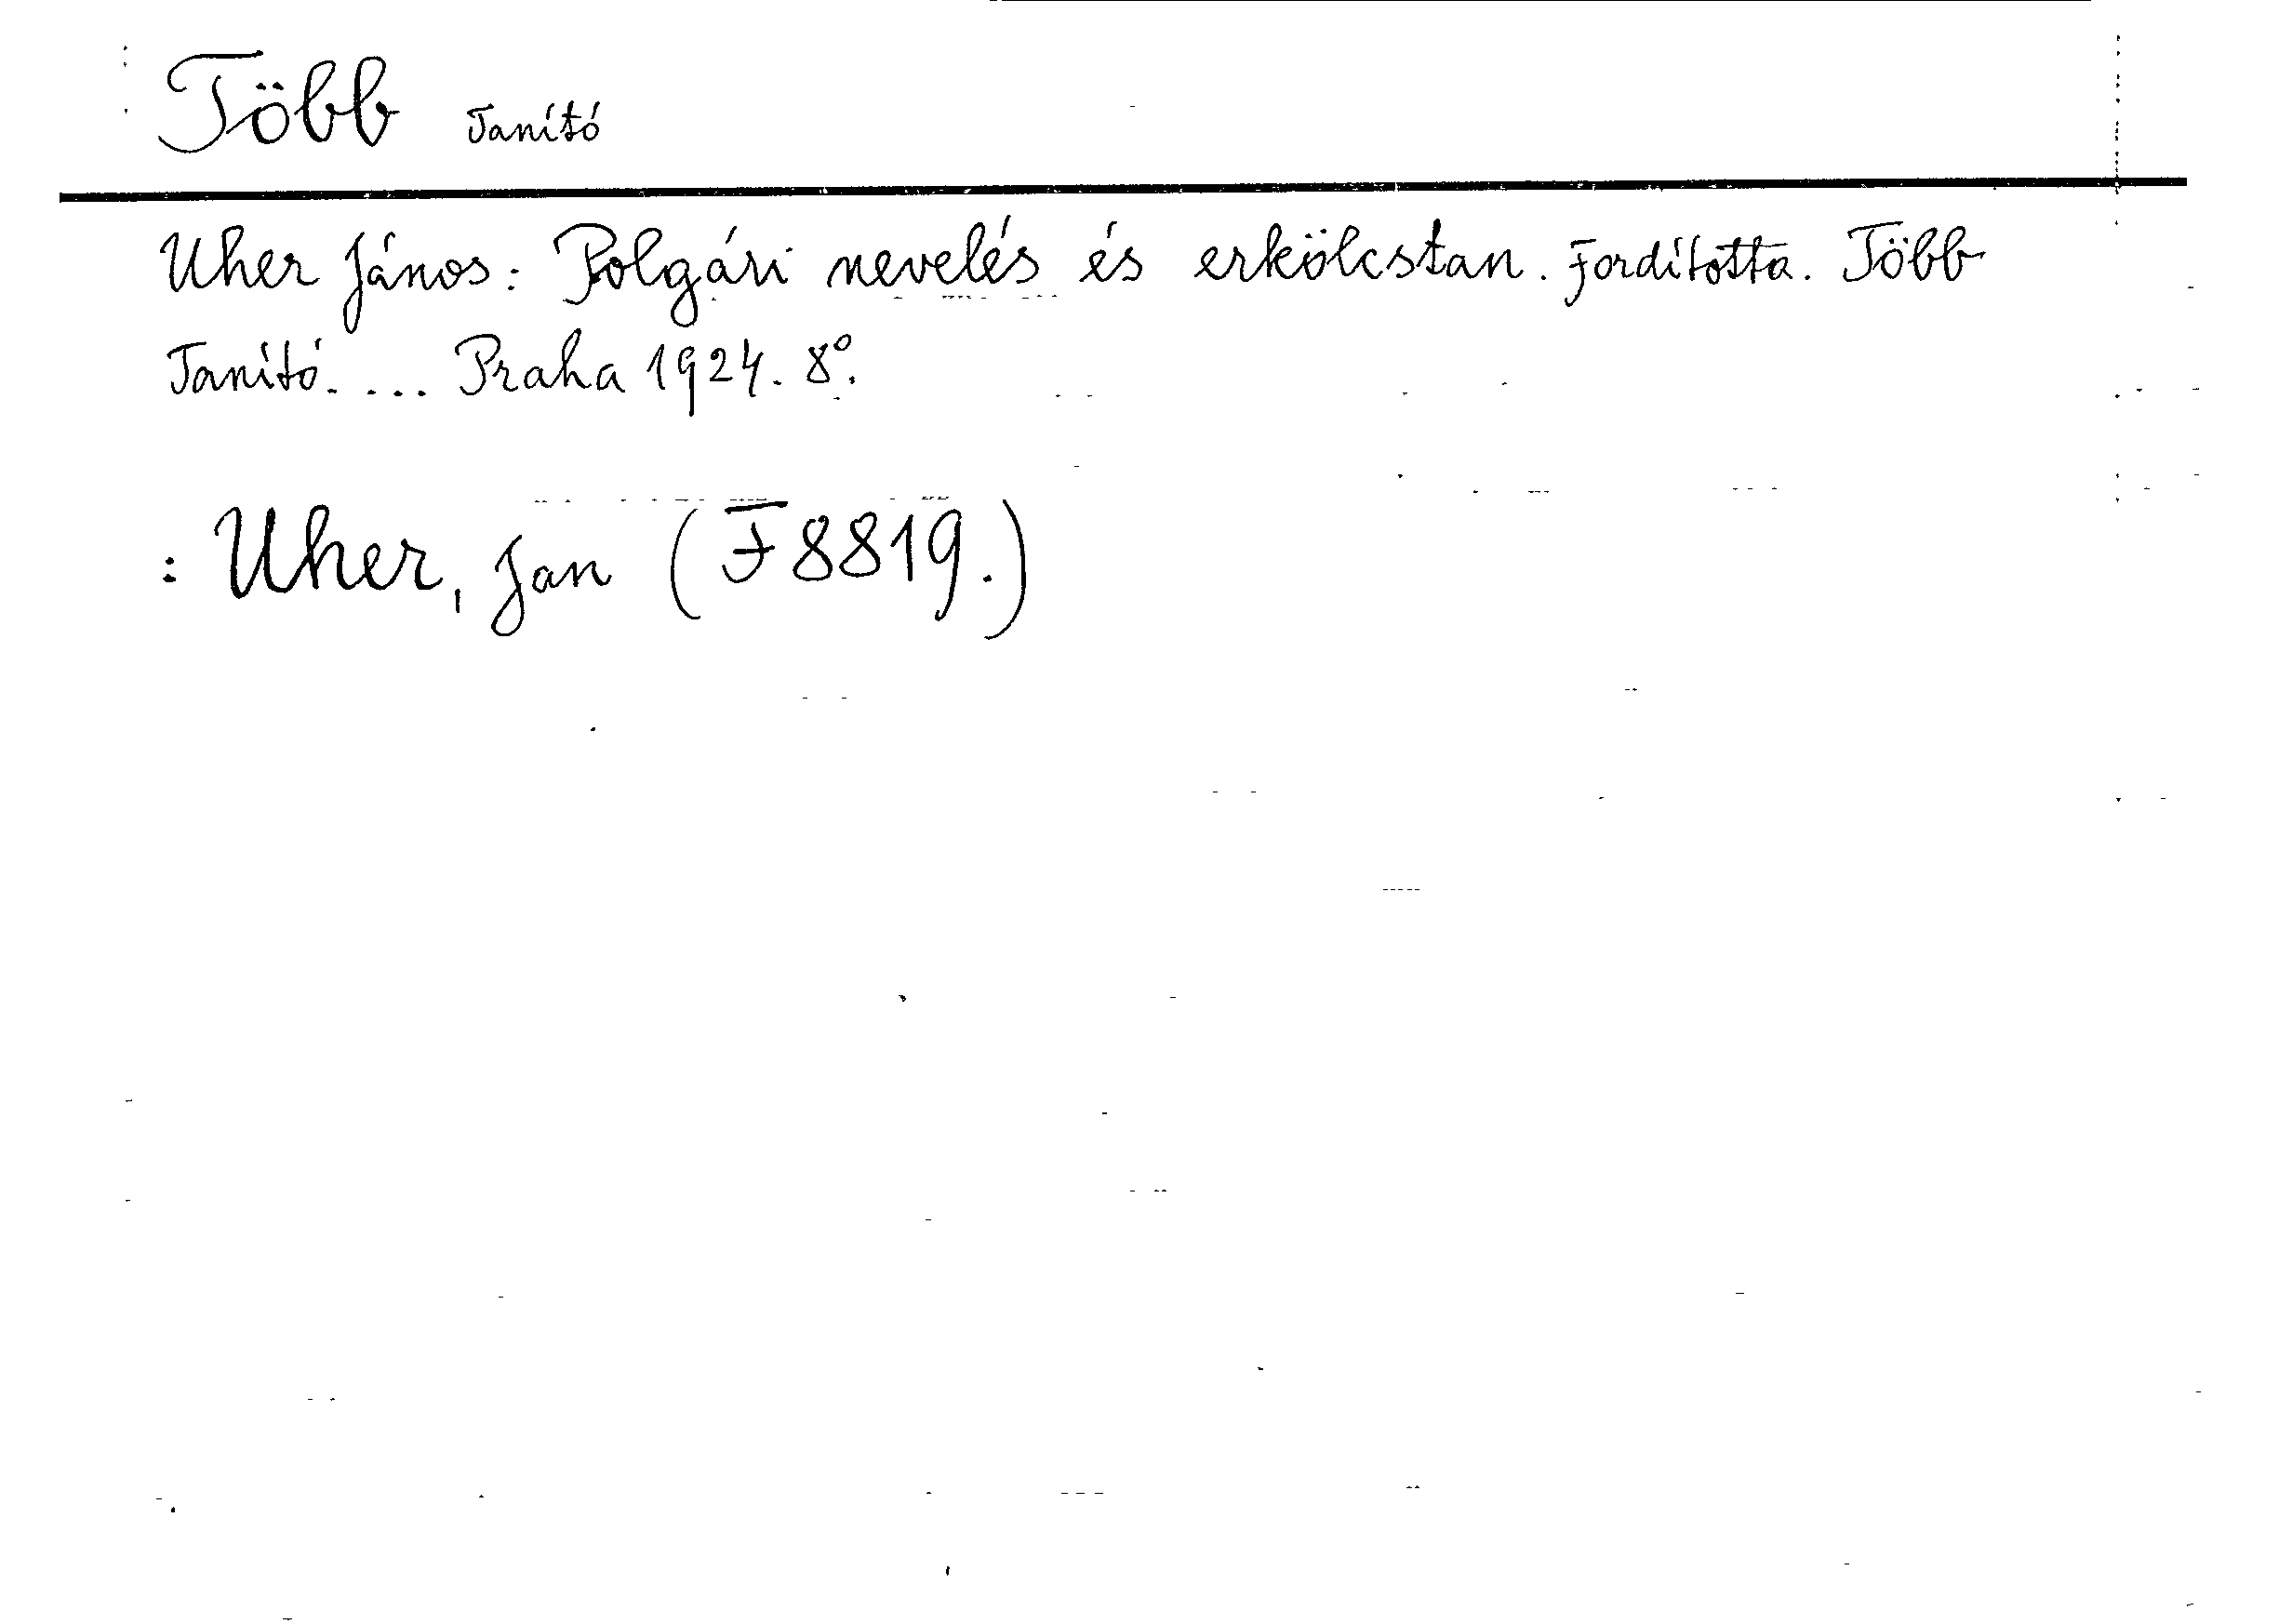 Több Tanító
Uher János: Polgári nevelés és erkölcstan. Fordította. Több
Tanító. ... Praha 1924. 8°.
: Uher, Jan (F 8819.)